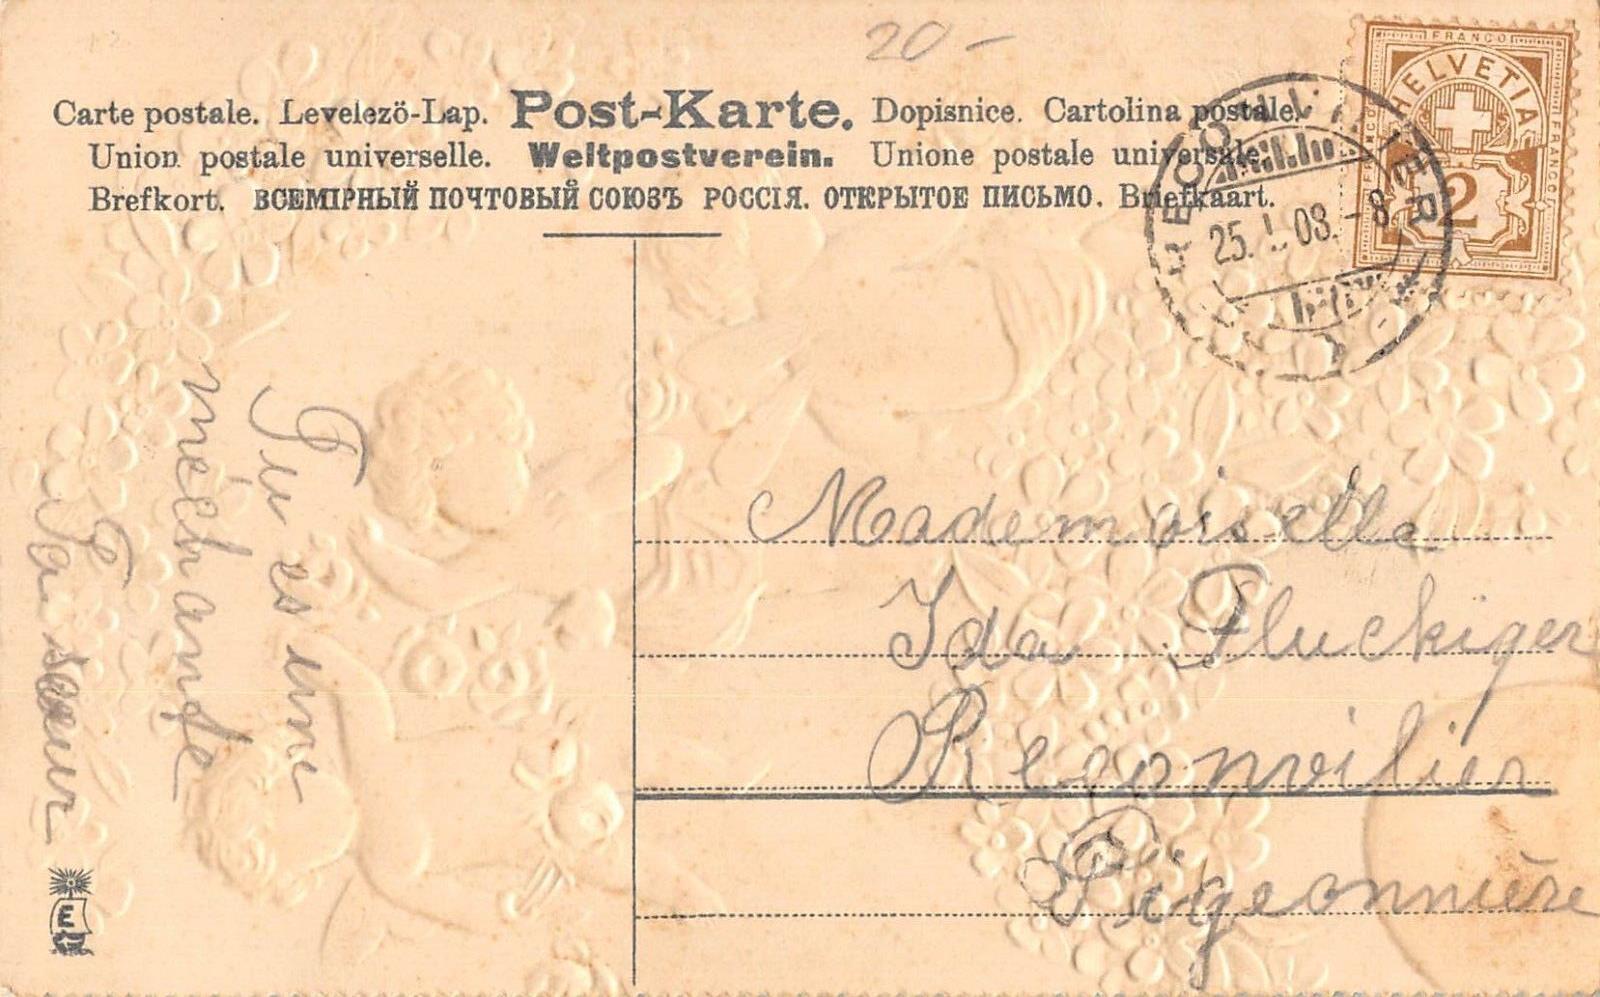 20 –
Carte postale. Levelező-Lap. Post-Karte. Dopisnice. Cartolina postale.
Union postale universelle. Weltpostverein. Unione postale universale.
Brefkort. ВСЕМІРНЫЙ ПОЧТОВЫЙ СОЮЗЪ РОССІЯ. ОТКРЫТОЕ ПИСЬМО. Briefkaart.
FRANCO
HELVETIA
FRANCO
2
RECONVILIER
25. I. 08. - 8
Tu es une
méchante
Ta sœur
Mademoiselle
Ida Fluckiger
Reconvilier
Pigeonnière
E